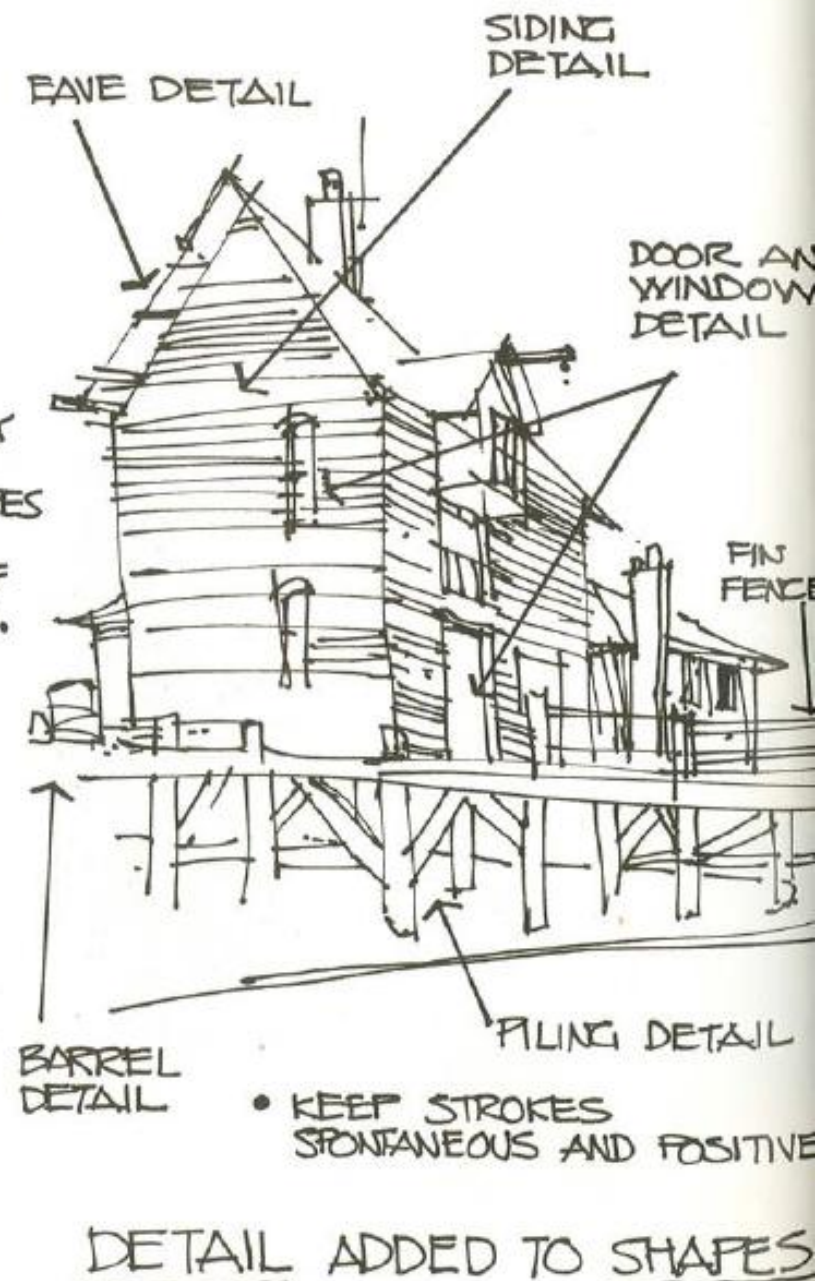 SIDING
DETAIL
EAVE DETAIL
DOOR AN
WINDOW
DETAIL
ES
FIN
FENCE
PILING DETAIL
BARREL
DETAIL
• KEEP STROKES
SPONTANEOUS AND POSITIVE
DETAIL ADDED TO SHAPES